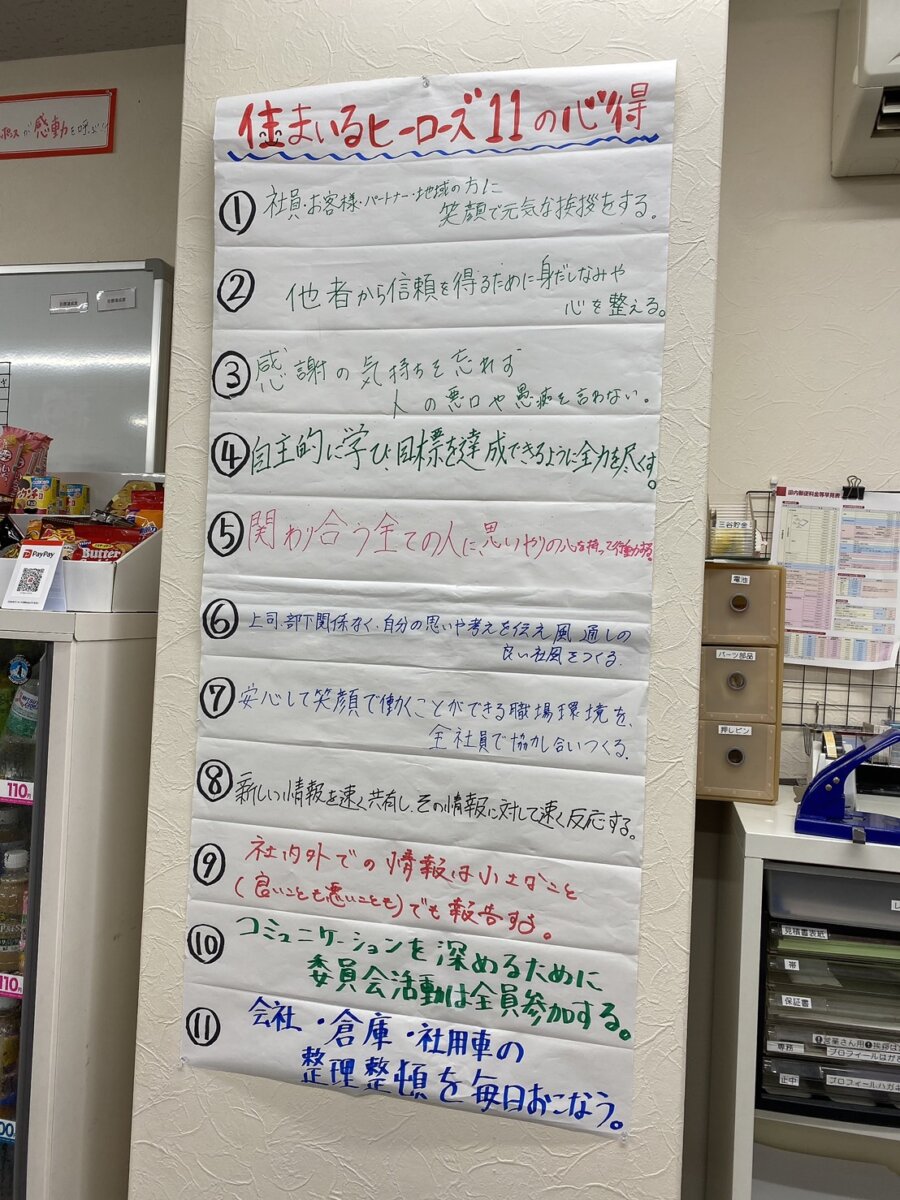 感動を呼ぶ
住まいるヒーローズ11の心得
① 社員・お客様・パートナー・地域の方に
笑顔で元気な挨拶をする。
② 他者から信頼を得るために身だしなみや
心を整える。
③ 感謝の気持ちを忘れず
人の悪口や愚痴を言わない。
④ 自主的に学び、目標を達成できるように全力を尽くす。
⑤ 関わり合う全ての人に、思いやりの心を持って行動する。
⑥ 上司・部下関係なく、自分の思いや考えを伝え風通しの
良い社風をつくる。
⑦ 安心して笑顔で働くことができる職場環境を、
全社員で協力し合いつくる。
⑧ 新しい情報を速く共有し、その情報に対して速く反応する。
⑨ 社内外での情報は小さなこと
(良いことも悪いことも)でも報告する。
⑩ コミュニケーションを深めるために
委員会活動は全員参加する。
⑪ 会社・倉庫・社用車の
整理整頓を毎日おこなう。
PayPay
Butter
110円
110円
国内郵便料金等早見表
三谷貯金
電池
パーツ部品
押しピン
見積書表紙
帯
保証書
専務
プロフィールはが
社中
プロフィールハガキ